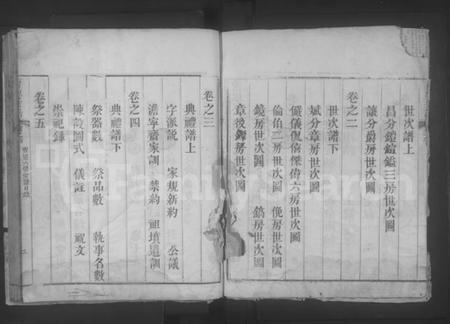 世次譜上
昌分鎧鎰三房世次圖
讓分爵房世次圖
卷之二
世次譜下
斌分章房世次圖
儼儀侃僖傑偉六房世次圖
倫伯二房世次圖 俛房世次圖
鏡房世次圖 鎬房世次圖
章後鐸房世次圖
卷之三
典禮譜上
字派說 家規新約 公議
家訓 禁約 祖墳遺訓
卷之四
典禮譜下
祭器數 祭品數 執事名數
陳設圖式 儀註 祝文
崇祀錄
卷之五
FamilySearch